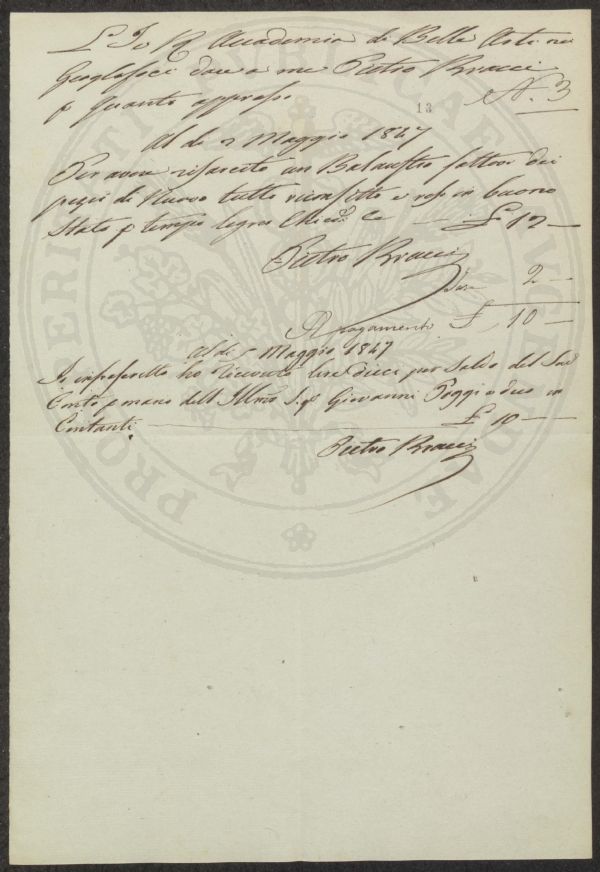 L' I e R Accademia di Belle Arti nei
Georgofili deve a me Pietro Bracci
p quanto appresso
13 N. 3
Al di 2 Maggio 1847
Per avere risarcito un Balaustro fattovi dei
pezzi di Nuovo tutto riconfitto e reso in buono
Stato p tempo legno £ 12
Pietro Bracci
2
A pagamento £ 10
Al di 5 Maggio 1847
Io infrascritto ho ricevuto lire dieci per Saldo del Sud
Conto p mano dell Illmo Sig Giovanni Poggi e dico in
Contanti £ 10
Pietro Bracci
PROSPERITATI PUBLICAE AUGENDAE